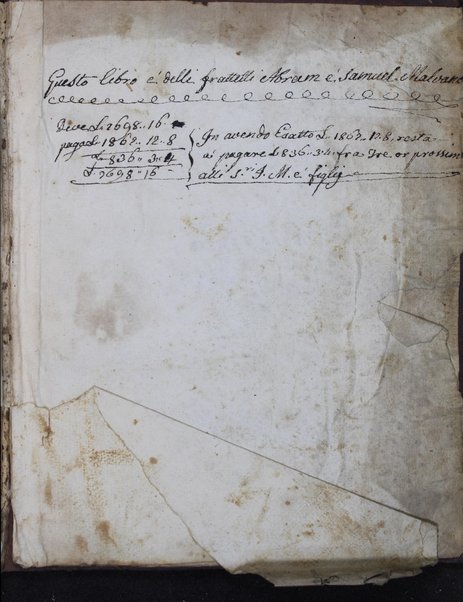 Questo libro é delli frattelli Abram é Samuel Malvano
Deve £ 2698.. 16 -
paga £ 1862.. 12.. 8
£ 836.. 3.. 4
£ 2698.. 16 -
In avendo Esatto £ 1862.. 12.. 8. resta
a' pagare £ 836.. 3.. 4 fra Tre. or prossim
alli S.ri J. M. é figlij